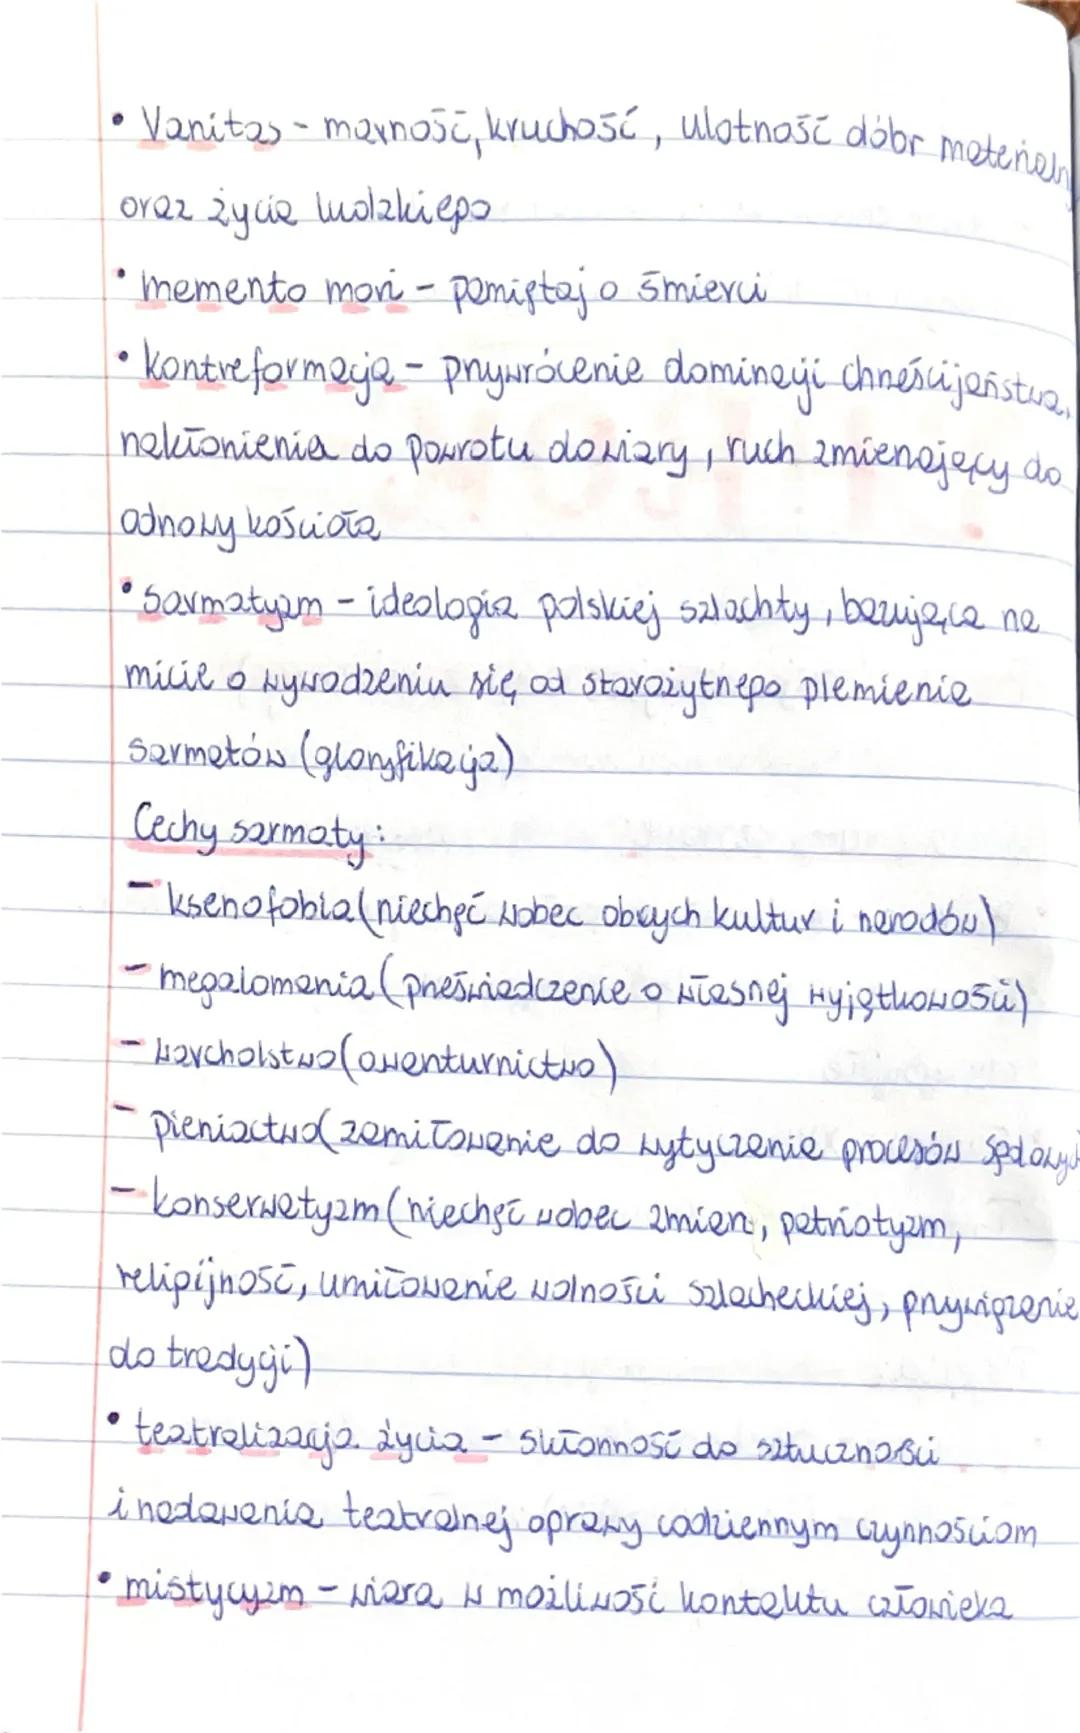 • Vanitas - marność, kruchość, ulotność dóbr materialn
oraz życia ludzkiego
• memento mori - pamiętaj o śmierci
• kontreformacja - przywrócenie dominacji chrześcijaństwa,
nakłonienia do powrotu do wiary, ruch zmienający do
odnowy kościoła
• Sarmatyzm - ideologia polskiej szlachty, bazująca na
micie o wywodzeniu się od starożytnego plemienia
sarmatów (gloryfikacja)
Cechy sarmaty:
- ksenofobia (niechęć wobec obcych kultur i narodów)
- megalomania (przeświadczenie o własnej wyjątkowości)
- warcholstwo (awanturnictwo)
- pieniactwo (zamiłowanie do wytyczania procesów sądowych
- konserwatyzm (niechęć wobec zmian, patriotyzm,
religijność, umiłowanie wolności szlacheckiej, przywiązanie
do tradycji)
• teatralizacja życia - skłonność do sztuczności
i nadawania teatralnej oprawy codziennym czynnościom
• mistycyzm - wiara w możliwość kontaktu człowieka